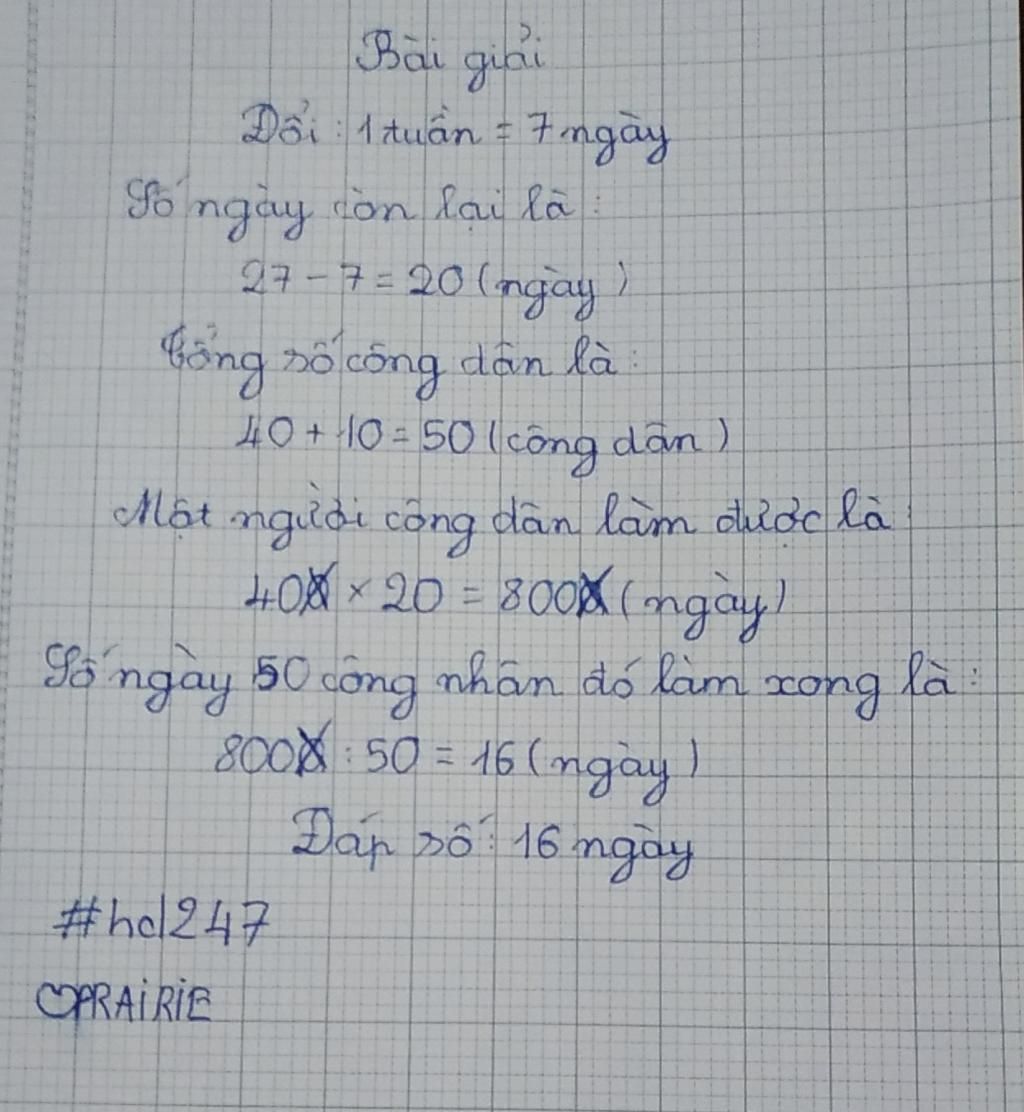 Bài giải
Đổi : 1 tuần = 7 ngày
Số ngày còn lại là :
27 - 7 = 20 (ngày)
Tổng số công dân là :
40 + 10 = 50 (công dân)
Một người công dân làm được là :
40 × 20 = 800 (ngày)
Số ngày 50 công nhân đó làm xong là :
800 : 50 = 16 (ngày)
Đáp số : 16 ngày
#hd247
♡PRAiRiE